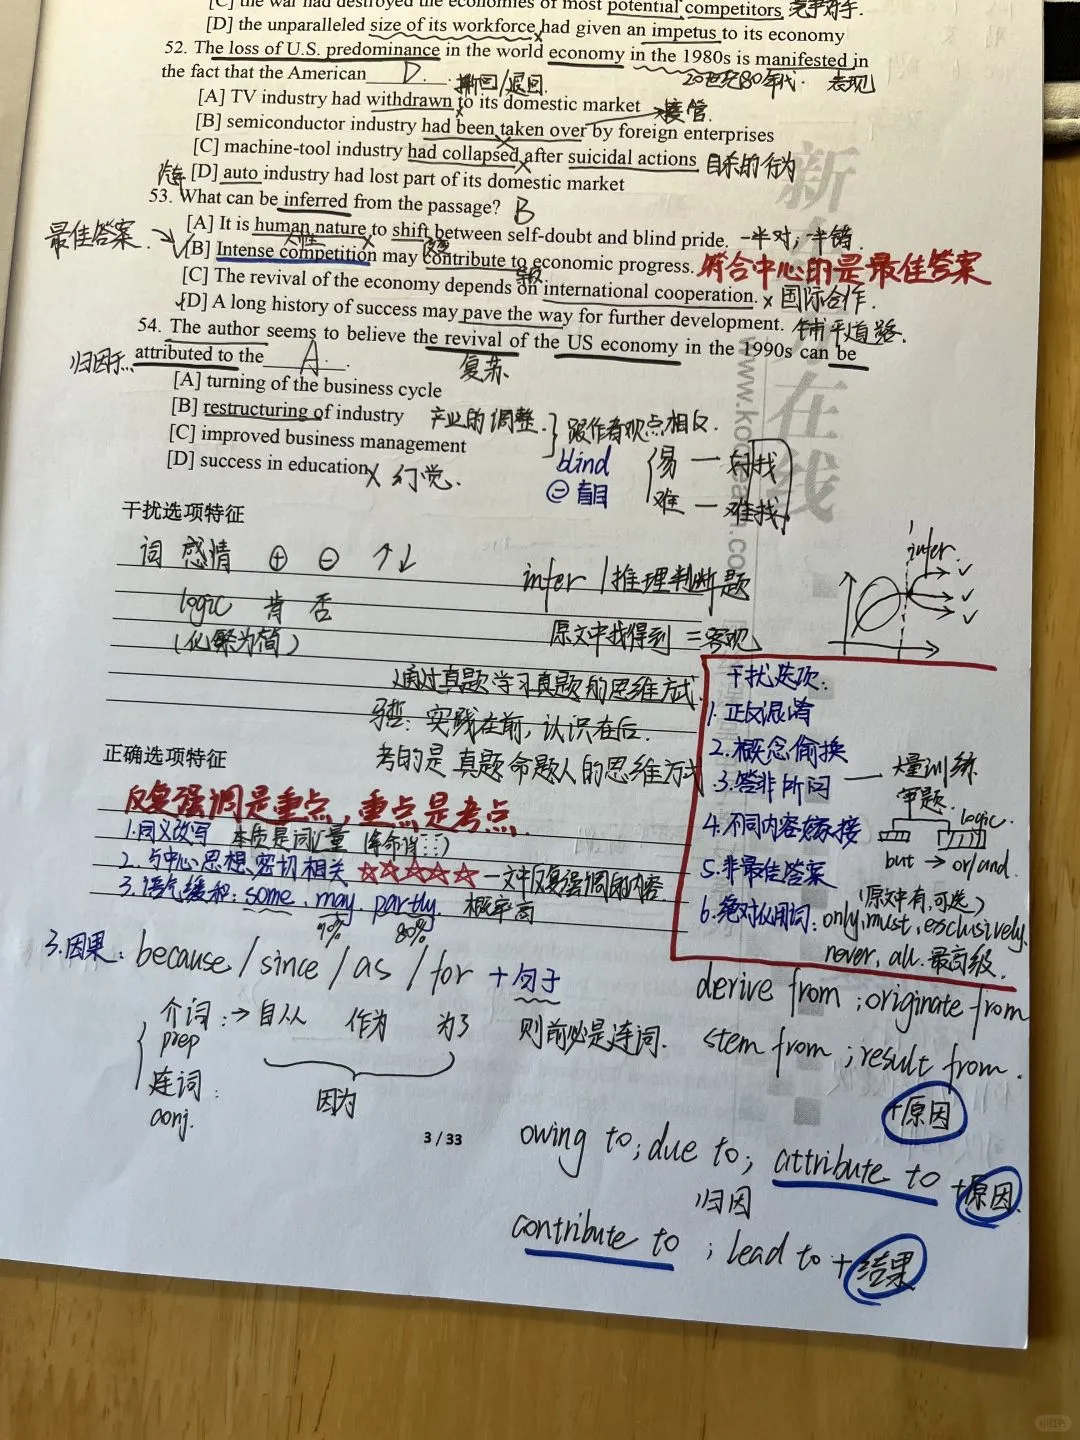 [C] the war had destroyed the economies of most potential competitors 竞争对手.
[D] the unparalleled size of its workforce had given an impetus to its economy
52. The loss of U.S. predominance in the world economy in the 1980s is manifested in
the fact that the American D. 撤回/退回 20世纪80年代. 表现
[A] TV industry had withdrawn to its domestic market → 接管.
[B] semiconductor industry had been taken over by foreign enterprises
[C] machine-tool industry had collapsed after suicidal actions 自杀的行为
[D] auto industry had lost part of its domestic market
53. What can be inferred from the passage? B
[A] It is human nature to shift between self-doubt and blind pride. 一半对, 一半错.
人性
最佳答案. ✓ [B] Intense competition may contribute to economic progress. 符合中心的是最佳答案
导致
[C] The revival of the economy depends on international cooperation. x 国际合作.
[D] A long history of success may pave the way for further development. 铺平道路.
54. The author seems to believe the revival of the US economy in the 1990s can be
归因于... attributed to the A. 复苏
[A] turning of the business cycle
[B] restructuring of industry 产业的调整.
跟作者观点相反.
[C] improved business management
[D] success in education x 幻觉.
blind
⊖ 盲目
易 — 好找
难 — 难找
新东方在线
www.koolearn.com
干扰选项特征
词 感情 ⊕ ⊖ ↑↓
logic 肯 否
(化繁为简)
infer 推理判断题
原文中找得到 = 客观
infer.
通过真题学习真题的思维方式.
马哲: 实践在前, 认识在后.
考的是真题命题人的思维方式
正确选项特征
反复强调是重点, 重点是考点.
1.同义改写 本质是词汇量
2.与中心思想密切相关 ☆☆☆☆☆ 一文中反复强调的内容.
3.语气缓和: some, may, partly. 概率高
90% 80%
干扰选项:
1. 正反混淆
2. 概念偷换
3. 答非所问 — 大量训练
4. 不同内容嫁接
logic.
but → or/and.
5. 非最佳答案
(原文中有, 可选)
6. 绝对化用词: only, must, exclusively,
never, all. 最高级.
3.因果: because / since / as / for + 句子
介词: → 自从 作为 为了 则前必是连词.
prep
连词:
conj.
因为
derive from ; originate from
stem from ; result from.
+原因
owing to; due to; attribute to +原因.
归因
contribute to ; lead to + 结果
3 / 33
小红书